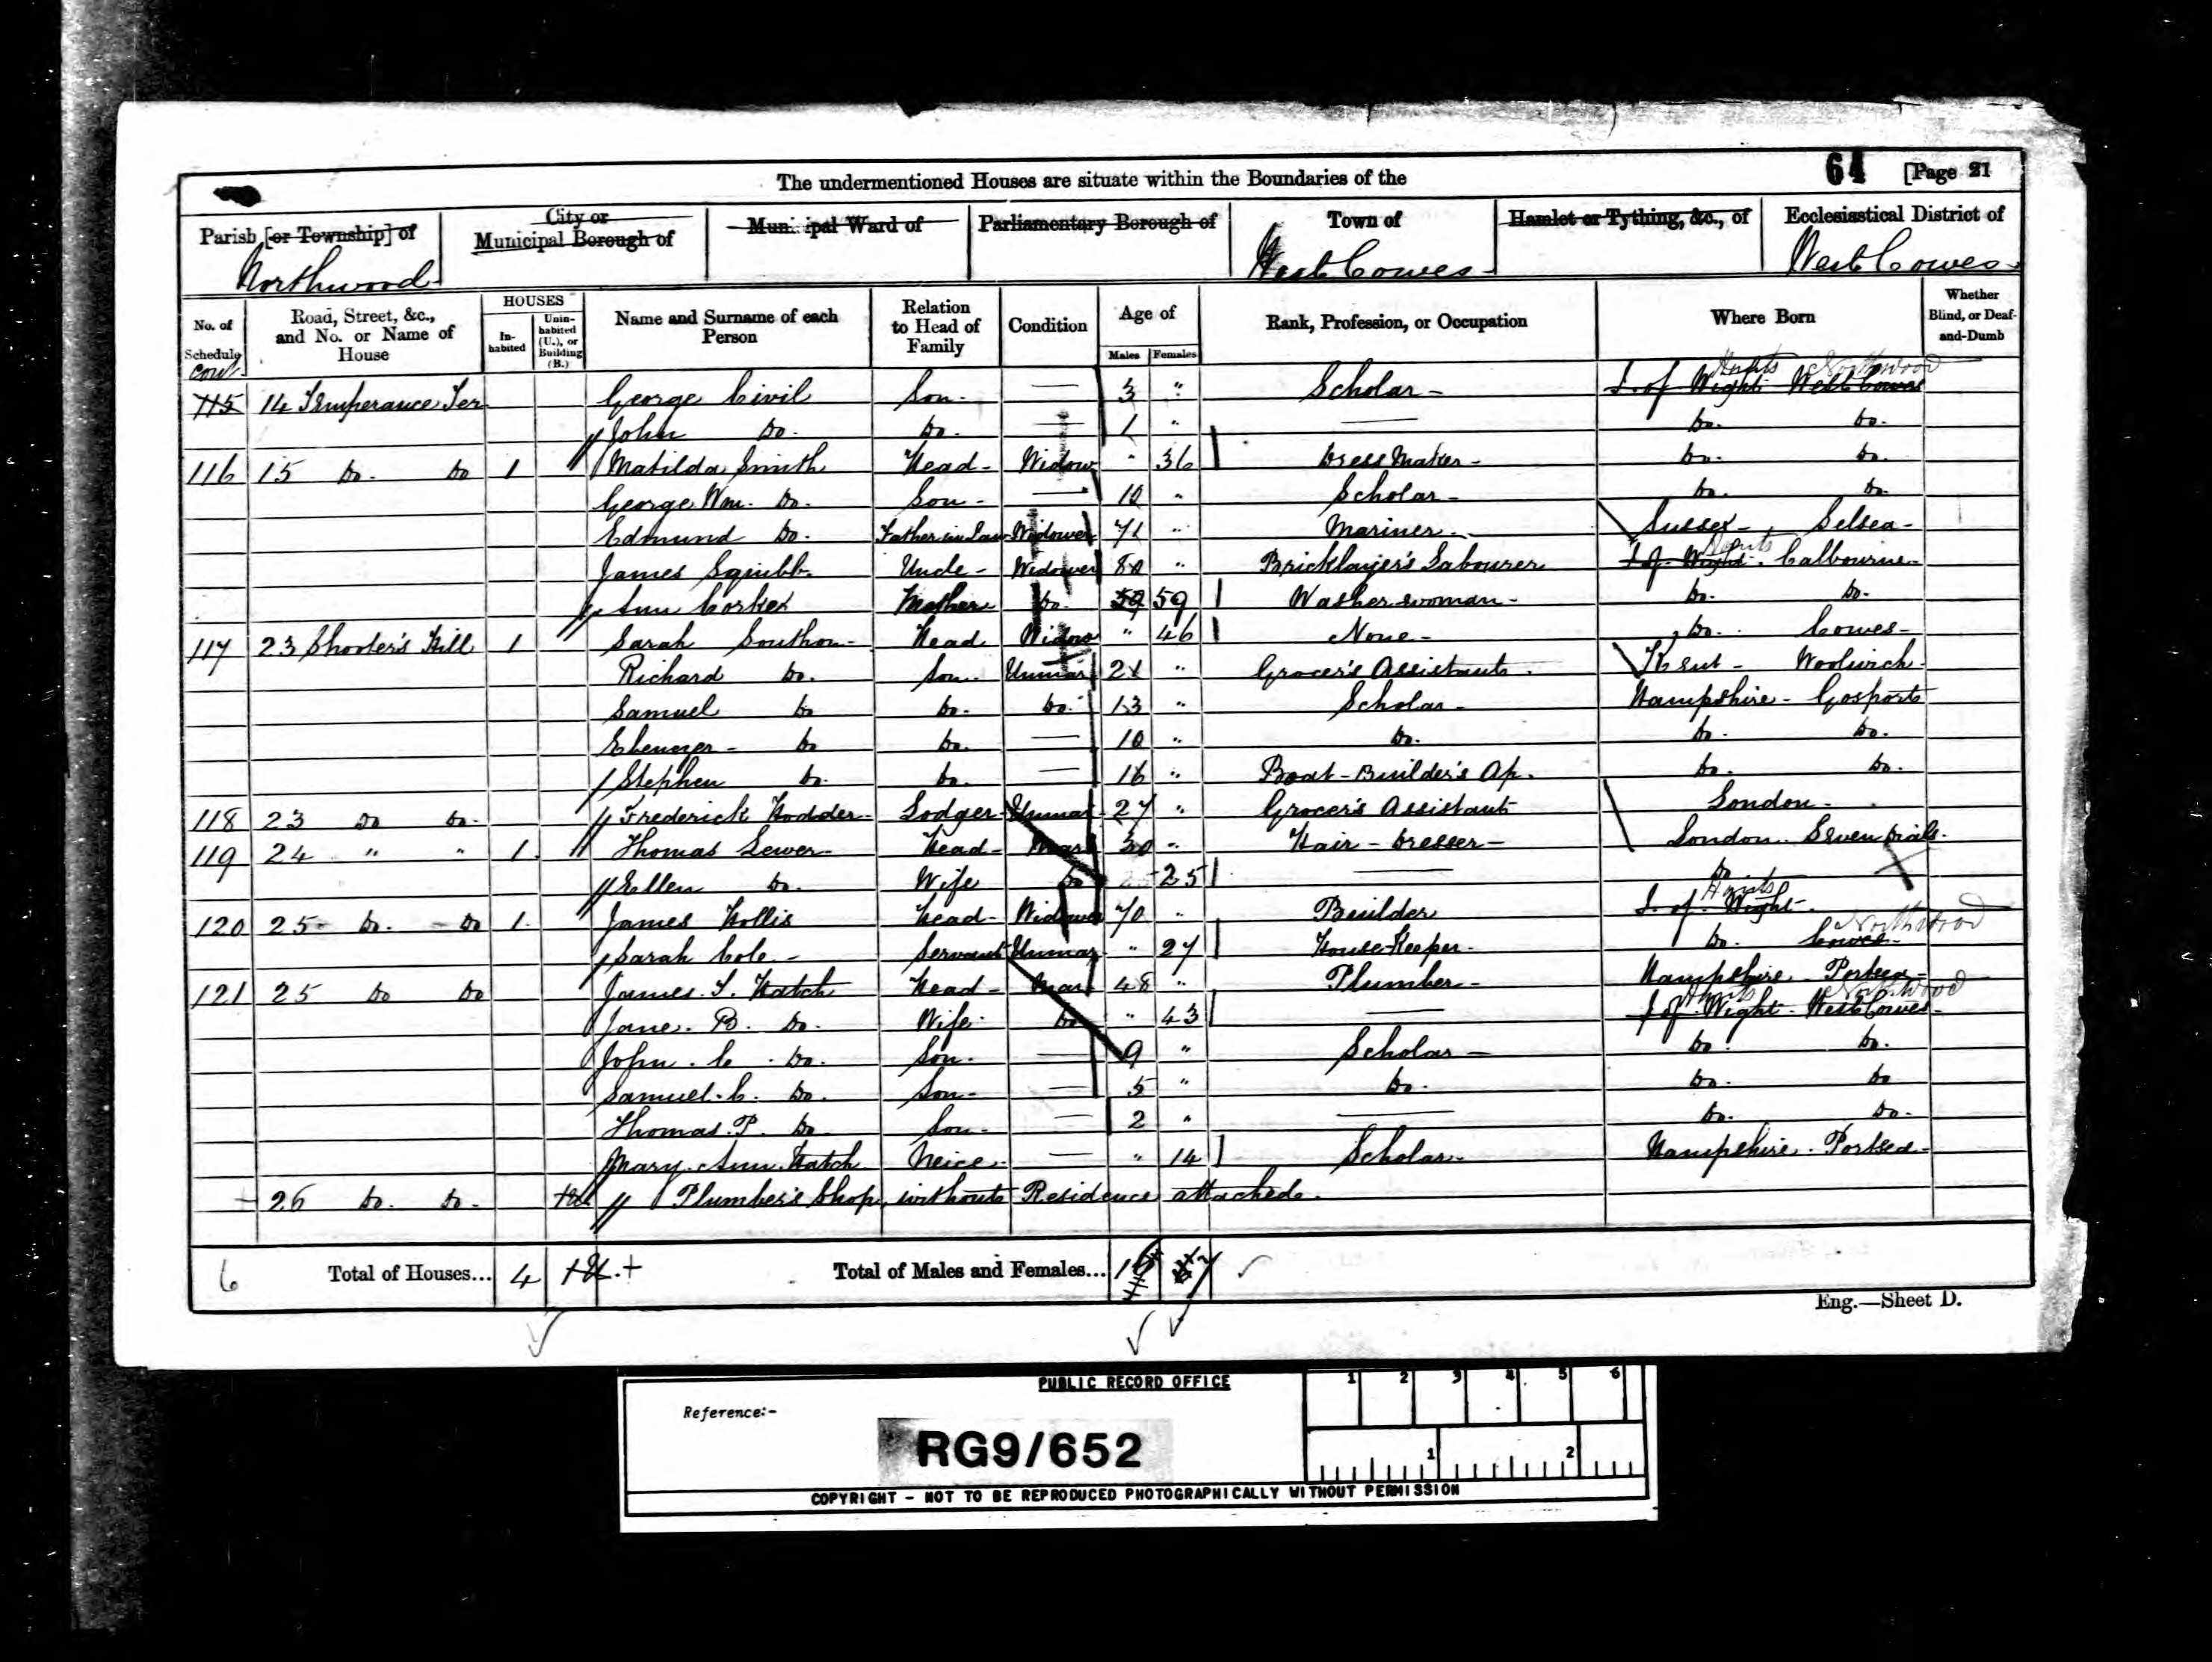 64 [Page 21
The undermentioned Houses are situate within the Boundaries of the
Parish [or Township] of
City or Municipal Borough of
Municipal Ward of
Parliamentary Borough of
Town of
Hamlet or Tything, &c., of
Ecclesiastical District of
Northwood West Cowes West Cowes
No. of Schedule
Road, Street, &c., and No. or Name of House
HOUSES
Inhabited
Uninhabited (U.), or Building (B.)
Name and Surname of each Person
Relation to Head of Family
Condition
Age of
Males Females
Rank, Profession, or Occupation
Where Born
Whether Blind, or Deaf-and-Dumb
cont.
Hants Northwood
115 14 Temperance Ter George Civil Son - — 3 " Scholar - I. of Wight West Cowes
John Do. Do. — 1 " — Do. Do.
116 15 Do. Do 1 Matilda Smith Head - Widow " 36 Dress Maker - Do. Do.
George Wm. Do. Son - — 10 " Scholar - Do. Do.
Edmund Do. Father in Law Widower 71 " Mariner - Sussex - Selsea -
Hants
James Squibb Uncle - Widower 80 " Bricklayer's Labourer I. of Wight. Calbourne -
Ann Corke Mother Do. 59 59 Washerwoman - Do. Do.
117 23 Shooter's Hill 1 Sarah Southon - Head Widow " 46 None - Do. Cowes -
Richard Do. Son Unmar 21 " Grocer's Assistant. Kent - Woolwich.
Samuel Do Do. Do. 13 " Scholar - Hampshire - Gosport
Ebenezer - Do Do. — 10 " Do. Do. Do.
Stephen Do. Do. — 16 " Boat-Builder's Ap. Do. Do.
118 23 Do Do. Frederick Hodder - Lodger - Unmar 27 " Grocer's Assistant London -
119 24 " " 1 Thomas Lewer - Head - Mar 30 " Hair-Dresser - London. Seven Dials.
Ellen Do. Wife Do 25 — Do.
Hants
120 25 - Do. - Do 1 James Hollis Head - Widower 70 " Builder I. of Wight -
Northwood
Sarah Cole - Servant Unmar " 27 House-Keeper - Do. Cowes -
121 25 Do Do James. S. Hatch Head - Mar 48 " Plumber - Hampshire - Portsea -
Hants Northwood
Jane. B. Do. Wife - Do " 43 — I of Wight - West Cowes -
John. C. Do. Son - — 9 " Scholar - Do. Do.
Samuel. C. Do. Son - — 5 " Do. Do. Do
Thomas. P. Do Son - — 2 " — Do. Do.
Mary. Ann. Hatch Neice - — " 14 Scholar - Hampshire - Portsea -
26 Do. Do. Plumber's Shop, without Residence attached.
6 Total of Houses... 4 Total of Males and Females... 16 7
Eng.—Sheet D.
PUBLIC RECORD OFFICE
Reference:-
RG9/652
1 2 3 4 5 6
1 2
COPYRIGHT - NOT TO BE REPRODUCED PHOTOGRAPHICALLY WITHOUT PERMISSION